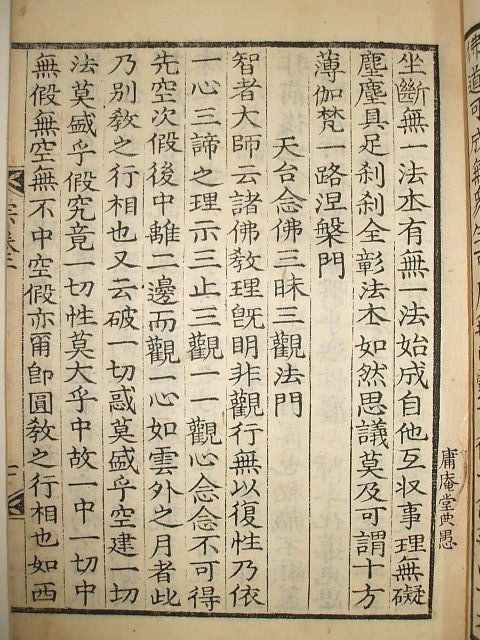 坐斷無一法本有無一法始成自他互収事理無礙
塵塵具足刹刹全彰法本如然思議莫及可謂十方
薄伽梵一路涅槃門
天台念佛三昧三觀法門
智者大師云諸佛教理旣明非觀行無以復性乃依
一心三諦之理示三止三觀一一觀心念念不可得
先空次假後中離二邊而觀一心如雲外之月者此
乃別教之行相也又云破一切惑莫盛乎空建一切
法莫盛乎假究竟一切性莫大乎中故一中一切中
無假無空無不中空假亦爾卽圓教之行相也如西